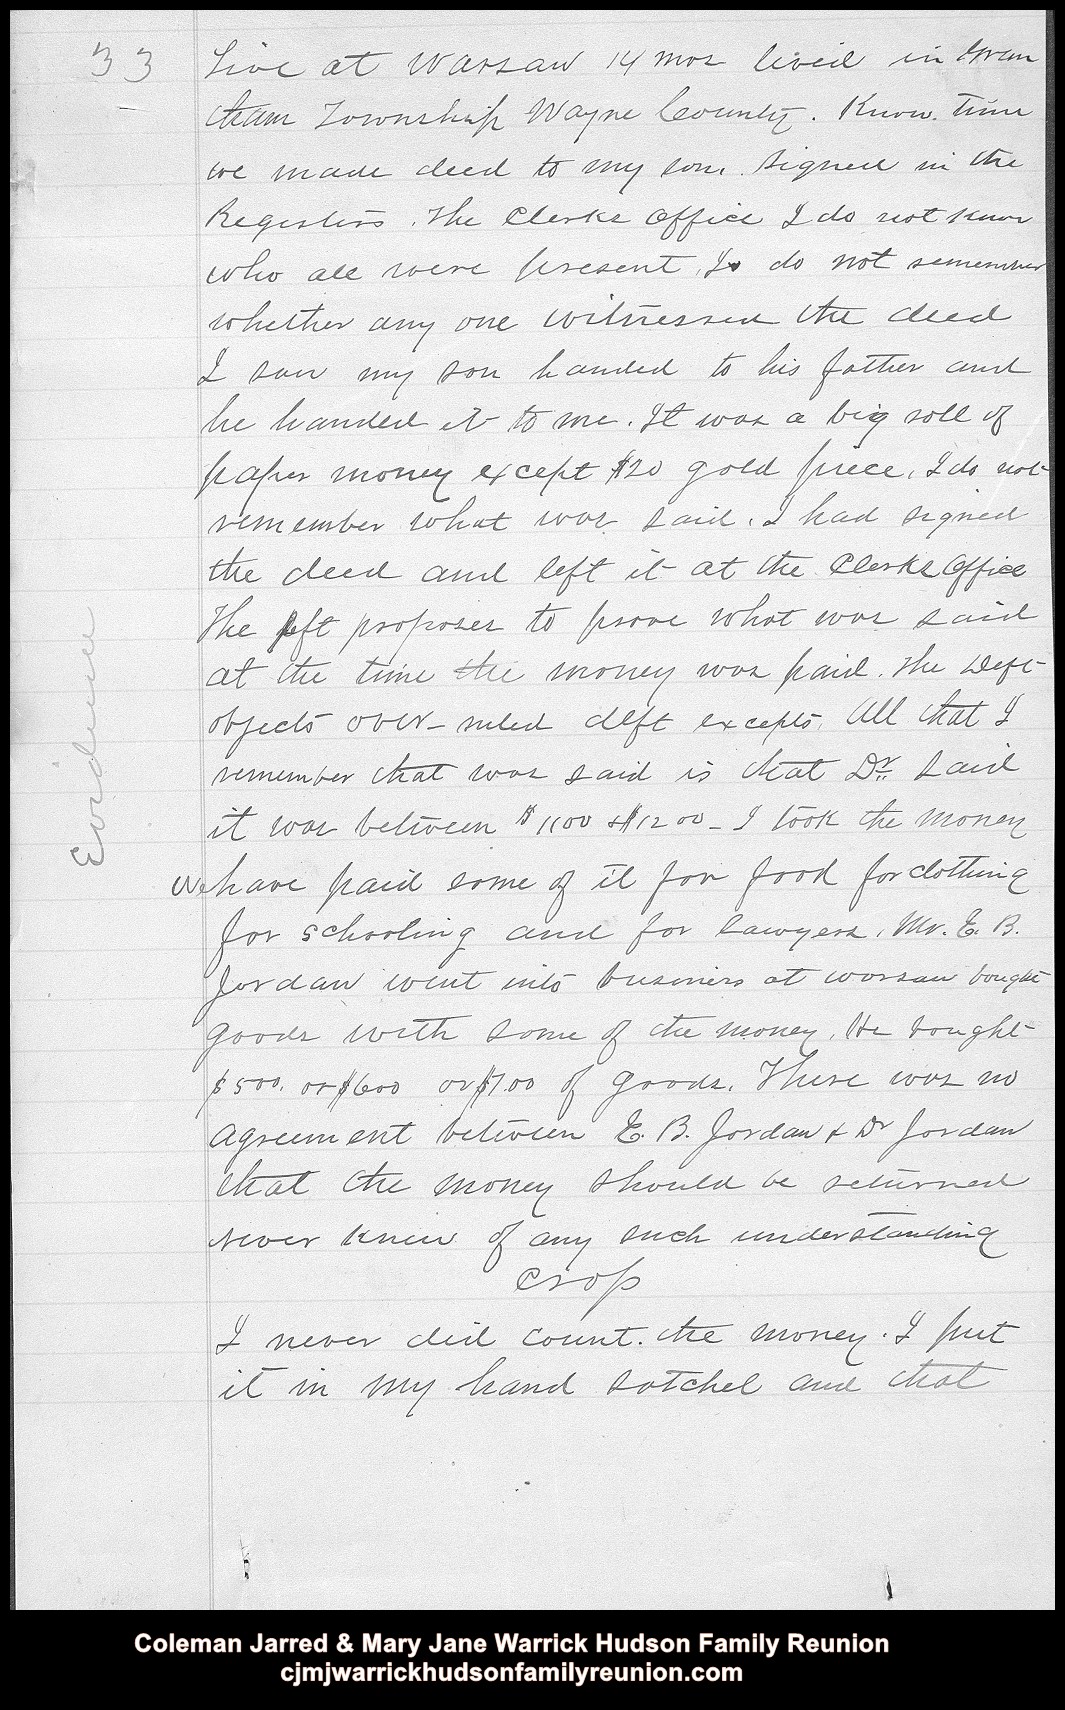 33
Live at Warsaw 14 mos lived in Gran
tham Township Wayne County. Know time
we made deed to my son. Signed in the
Registers. The Clerks office I do not know
who all were present. I do not remember
whether any one witnessed the deed
I saw my son handed to his father and
he handed it to me. It was a big roll of
paper money except $20 gold piece. I do not
remember what was said. I had signed
the deed and left it at the Clerks Office
The plft proposes to prove what was said
at the time the money was paid. The Deft
objects over-ruled deft excepts. All that I
remember that was said is that Dr. said
it was between $1100 & $1200 - I took the money
We have paid some of it for food for clothing
for schooling and for lawyers. Mr. E. B.
Jordan went into business at Warsaw bought
goods with some of the money. He bought
$500. or $600 or $700 of goods. There was no
agreement between E. B. Jordan & Dr Jordan
that the money should be returned
never knew of any such understanding
Crop
I never did count. the money. I put
it in my hand satchel and that
Evidence
Coleman Jarred & Mary Jane Warrick Hudson Family Reunion
cjmjwarrickhudsonfamilyreunion.com